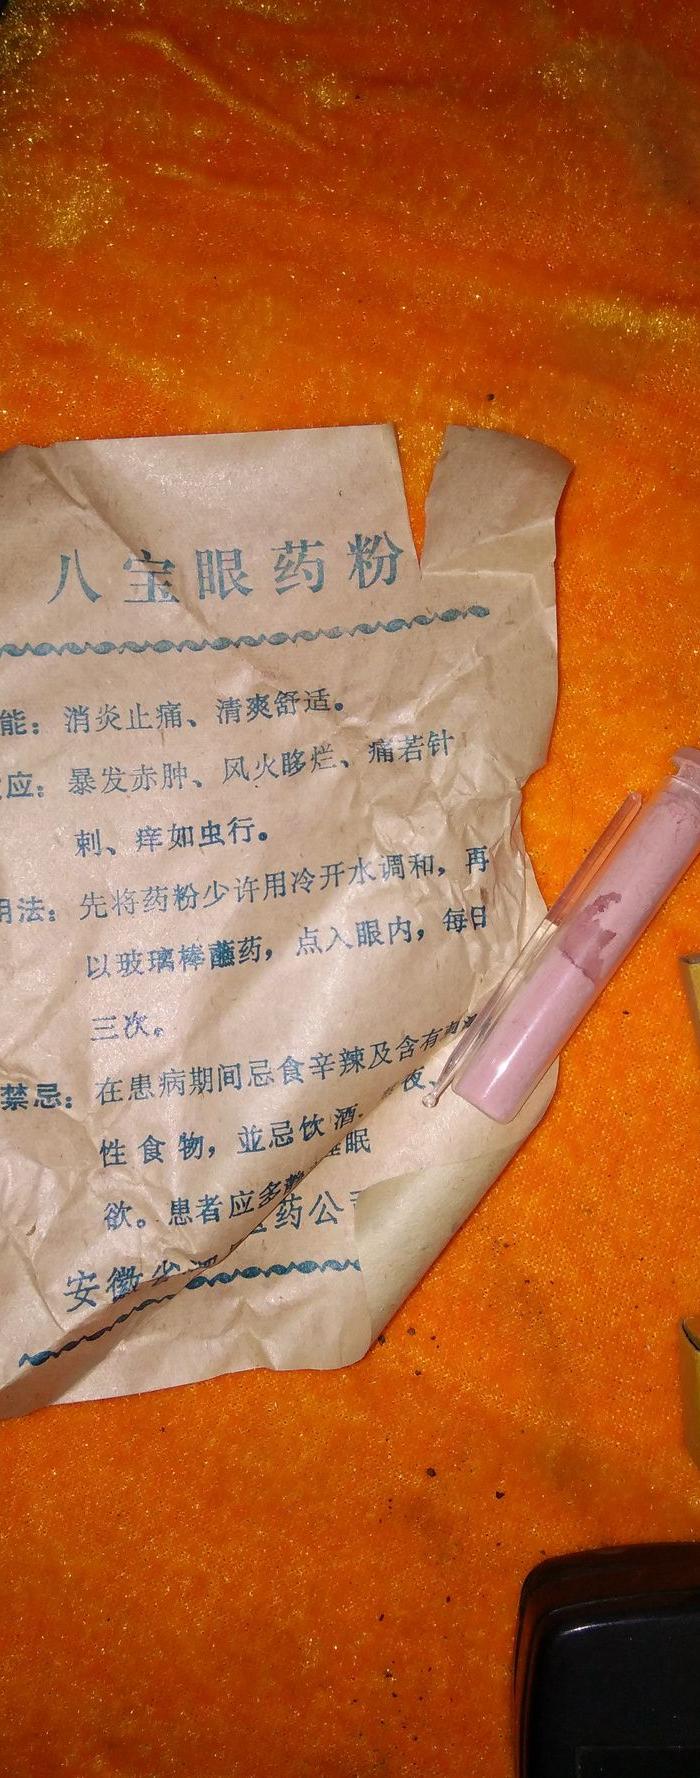 八宝眼药粉
能：消炎止痛、清爽舒适。
应：暴发赤肿、风火眵烂、痛若针
刺、痒如虫行。
用法：先将药粉少许用冷开水调和，再
以玻璃棒蘸药，点入眼内，每日
三次。
禁忌：在患病期间忌食辛辣及含有刺
性食物，並忌饮酒 夜、
欲。患者应多 眠
安徽 药公